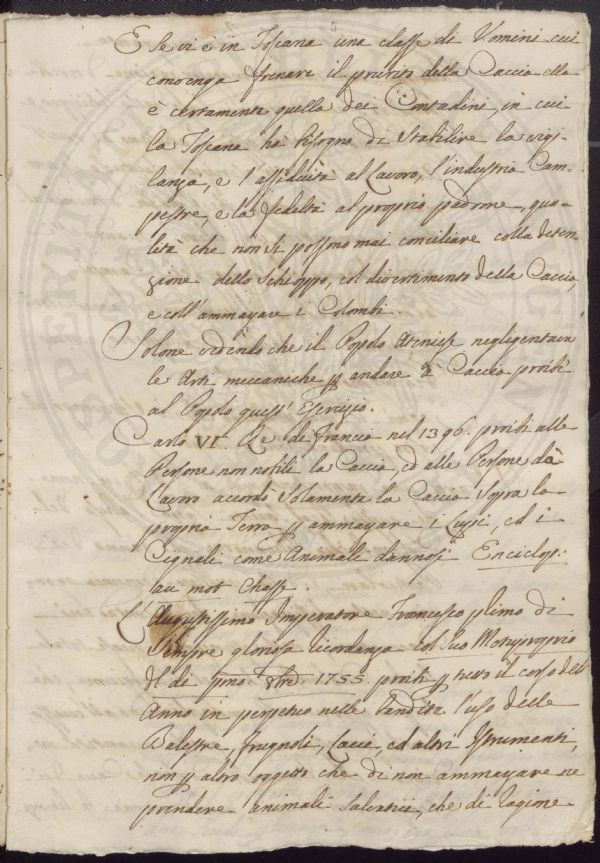 E se vi è in Toscana una classe di Uomini cui
convenga frenare il prurito della Caccia ella
è certamente quella dei Contadini, in cui
la Toscana ha bisogno di stabilire la vigi-
lanza, e l'assiduità al Lavoro, l'industria Cam-
pestre, e la fedeltà al proprio padrone, qua-
lità che non si possono mai conciliare colla deten-
zione dello Schioppo, col divertimento della Caccia,
e coll'ammazzare i Colombi.
Solone vedendo che il Popolo Ateniese negligentava
le Arti meccaniche p andare à Caccia proibì
al Popolo quest'Esercizio.
Carlo VI. Re di Francia nel 1396. proibì alle
Persone non nobili la Caccia, ed alle Persone dà
Lavoro accordò solamente la Caccia sopra la
propria Terra p ammazzare i Lupi, ed i
Cignali come Animali dannosi Enciclop:
au mot Chasse.
L'Augustissimo Imperatore Francesco primo di
sempre gloriosa ricordanza col suo Motuproprio
del dì pmo. 1755. proibì p tutto il corso dell'
Anno in perpetuo nelle bandita l'uso delle
Balestre, frugnoli, Lacci, ed altri Istrumenti,
non p altro oggetto che di non ammazzare ne
prendere animali salvatici, che di ragione